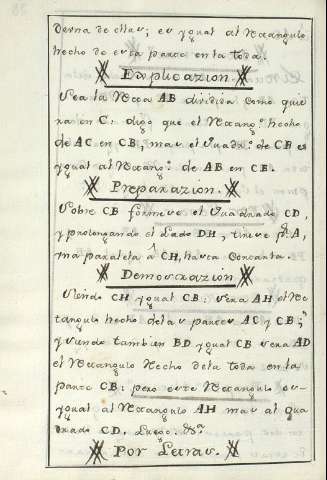 derna de ellas; es ygual al Rectangulo
hecho de esta parte en la toda.
Explicazion
Sea la Recta AB dividida como quie
ra en C: digo que el Rectang.º hecho
de AC en CB, mas el Quadr.º de CB es
ygual al Rectang.º de AB en CB.
Preparazion.
Sobre CB formese el Quadrado CD,
y prolongando el Lado DH, tirese p.r A,
una paralela à CH, hasta
Demostrazion
Siendo CH ygual CB: sera AH el Rec
tangulo hecho delas partes AC, y CB;
y siendo tambien BD ygual CB sera AD
el Rectangulo Hecho dela toda en la
parte CB: pero este Rectangulo es
ygual al Rectangulo AH mas al qua
drado CD. Luego. &ª
Por Letras.